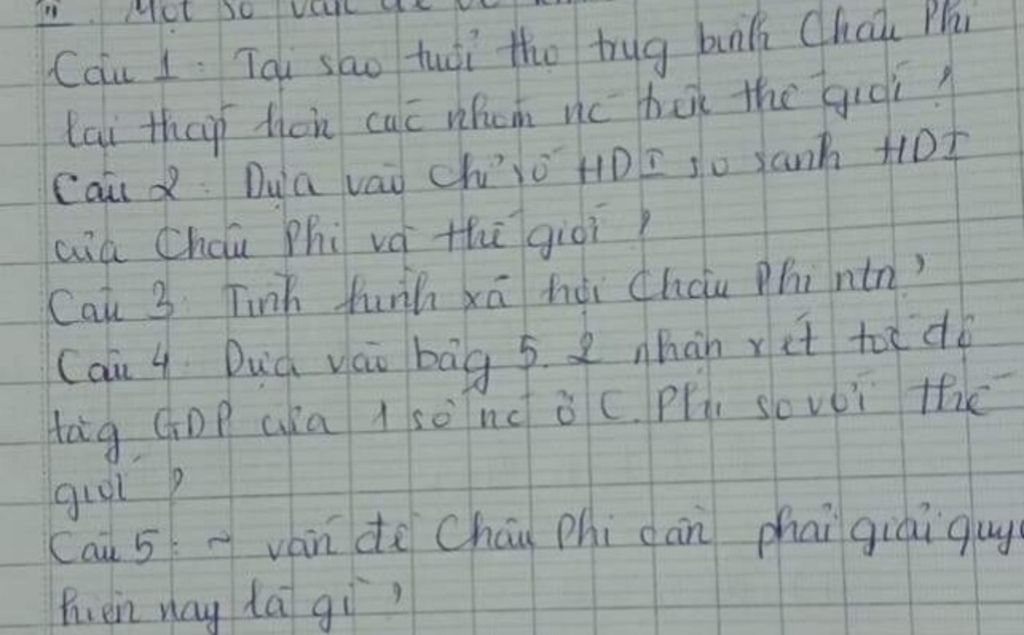 Một số vấn đề
Câu 1: Tại sao tuổi thọ trug bình Châu Phi
lại thấp hơn các nhóm nc trên thế giới?
Câu 2: Dựa vào chỉ số HDI so sánh HDI
của Châu Phi và thế giới?
Câu 3: Tình hình xã hội Châu Phi ntn?
Câu 4. Dựa vào bảg 5.2 nhận xét tốc độ
tăg GDP của 1 số nc ở C. Phi so với thế
giới?
Câu 5: ~ vấn đề Châu Phi cần phải giải quy
hiện nay là gì?